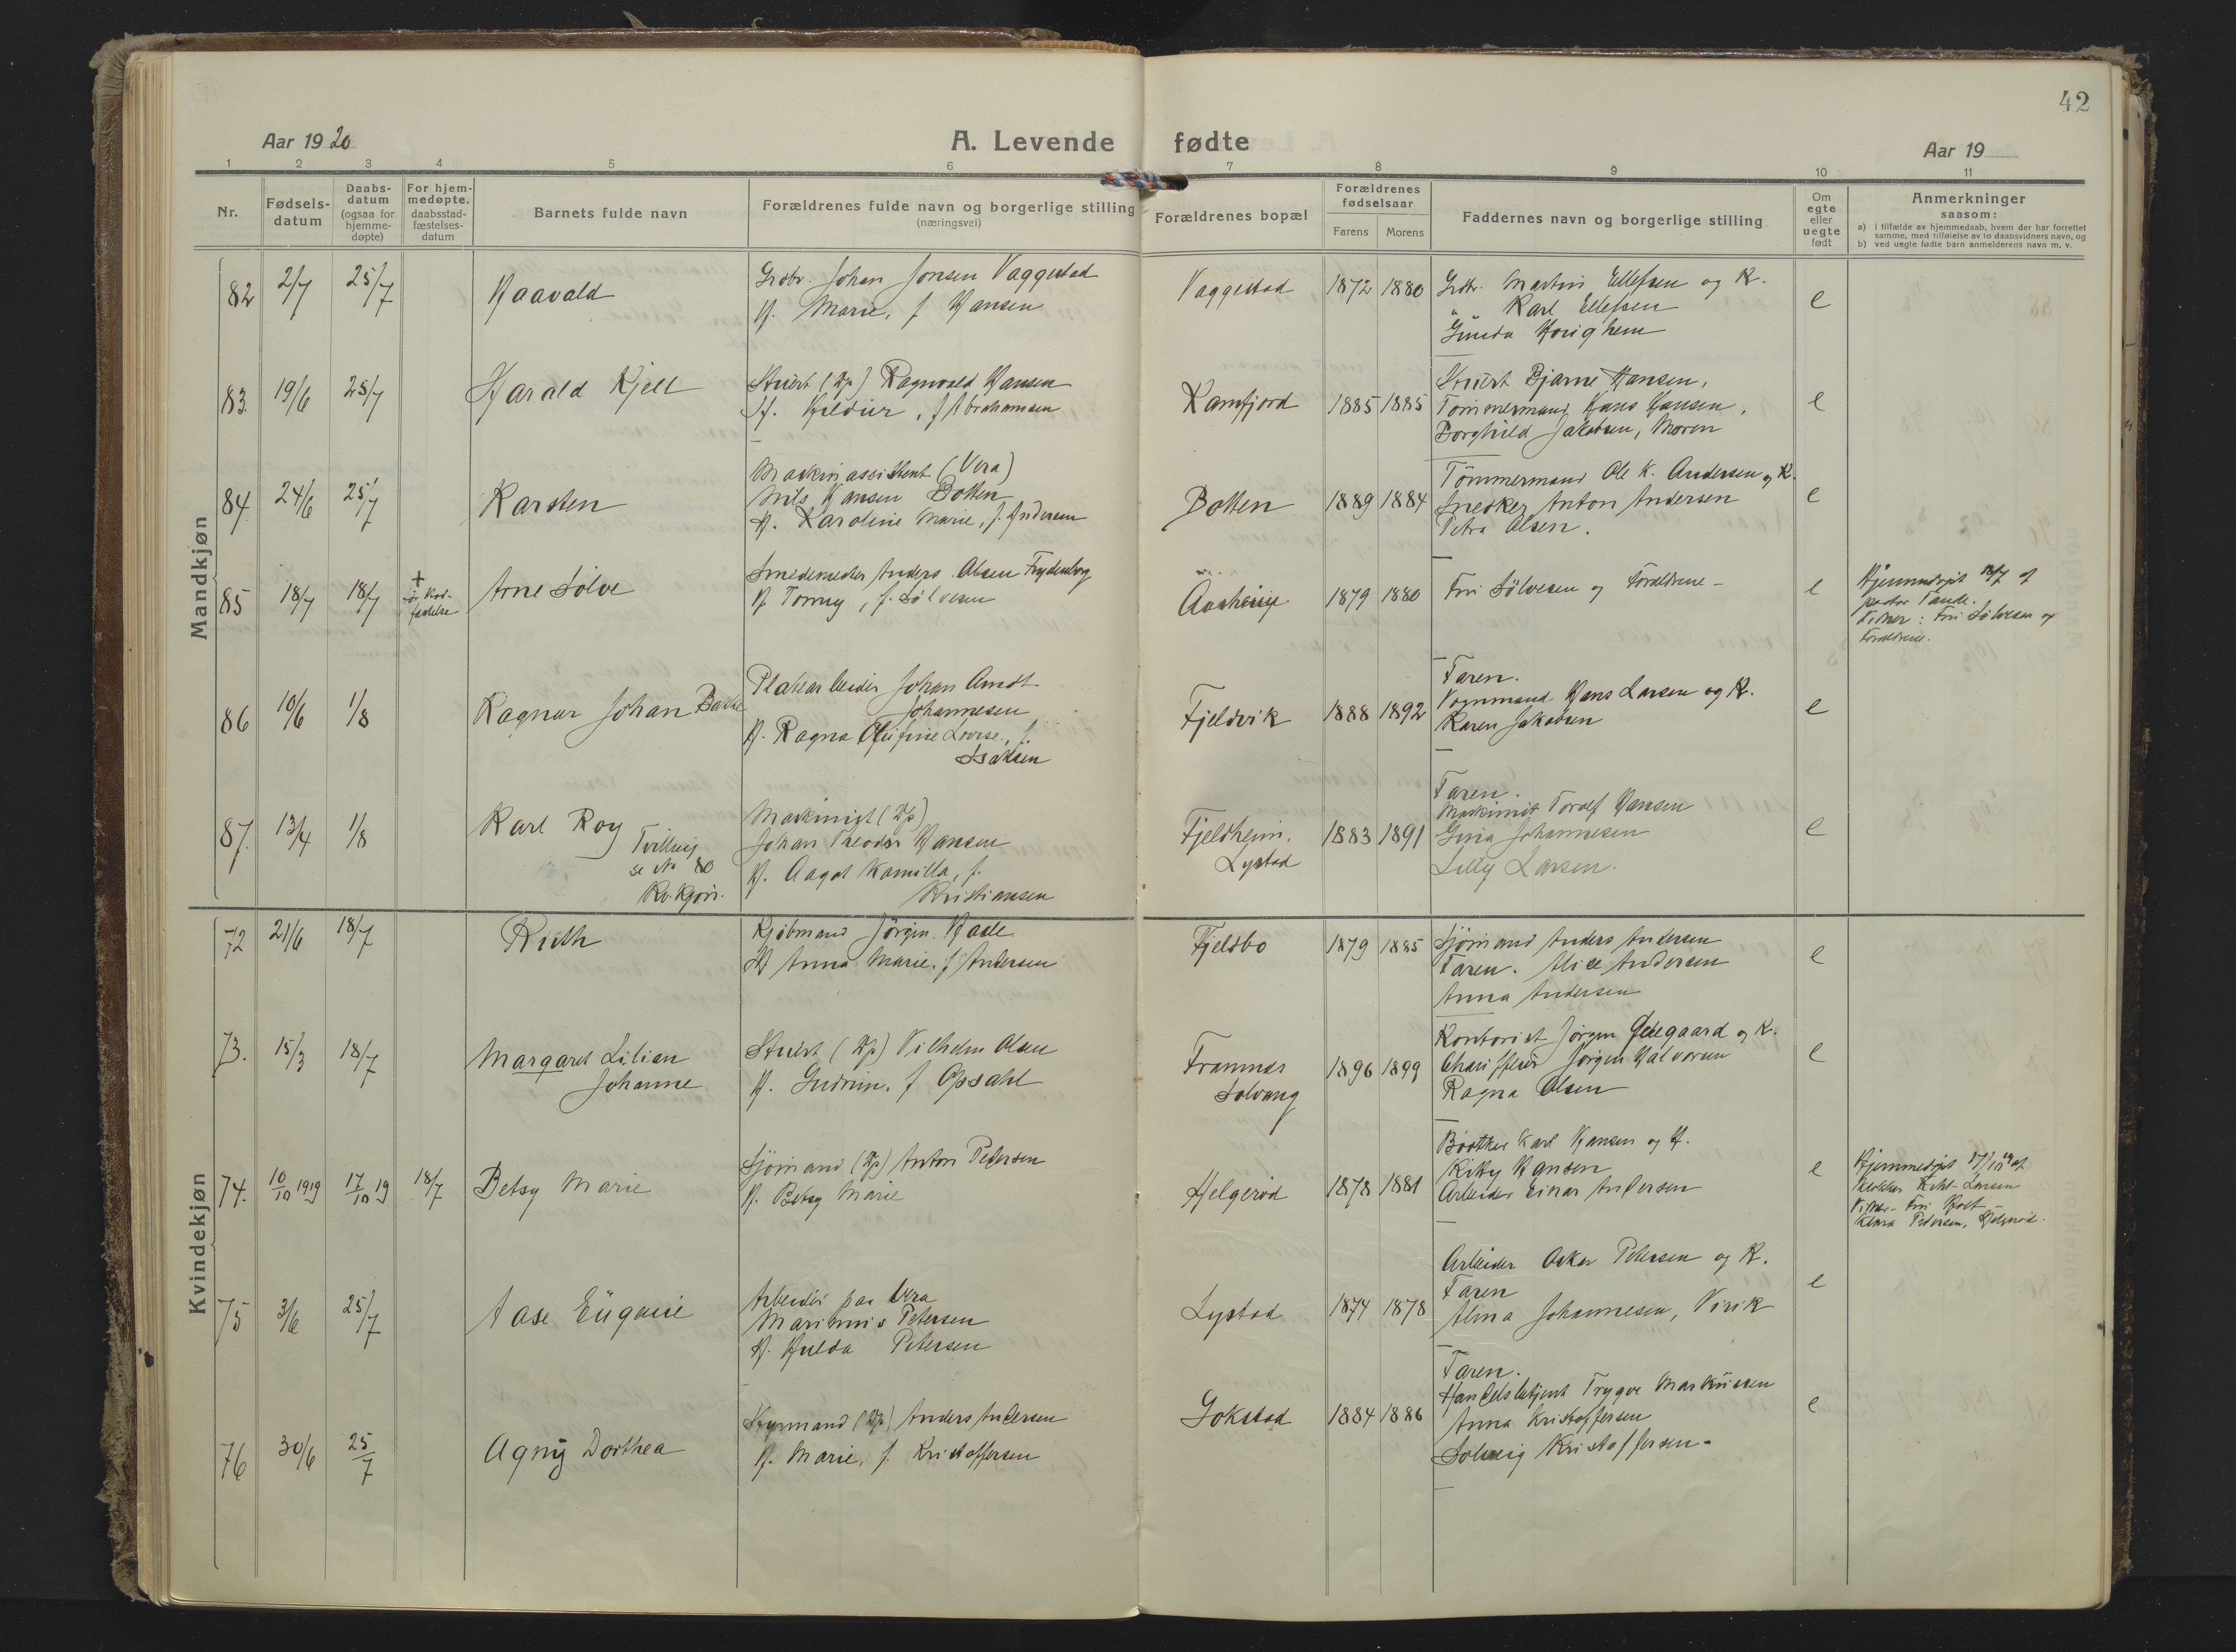 42
Aar 1920
A. Levende fødte
Aar 19
1 2 3 4 5 6 7 8 9 10 11
Nr.
Fødsels-
datum
Daabs-
datum
(ogsaa for
hjemme-
døpte)
For hjem-
medøpte,
daabsstad-
fæstelses-
datum
Barnets fulde navn
Forældrenes fulde navn og borgerlige stilling
(næringsvei)
Forældrenes bopæl
Forældrenes
fødselsaar
Farens Morens
Faddernes navn og borgerlige stilling
Om
egte
eller
uegte
født
Anmerkninger
saasom:
a) i tilfælde av hjemmedaab, hvem der har forrettet
samme, med tilføielse av to daabsvidners navn, og
b) ved uegte fødte barn anmelderens navn m. v.
Mandkjøn
82 2/7 25/7 Haavald
Grdbr. Johan Jonsen Vaggestad
H. Marie, f Hansen
Vaggestad 1872 1880
Grdbr. Martin Ellefsen og K.
" Karl Ellefsen
Gunda
e
83. 19/6 25/7 Harald Kjell
Stuert (Hp) Ragnvald Hansen
H. Hildur, f Abrahamsen
Kamfjord 1885 1885
Stuert Bjarne Hansen,
Tømmermand Hans Hansen,
Borghild Jakobsen, Moren
e
84 24/6 25/7 Karsten
Maskinassistent (Vera)
Nils Hansen Botten
H. Karoline Marie, f. Andersen
Botten 1889 1884
Tømmermand Ole K. Andersen og K.
Snedker Anton Andersen
Petra Olsen.
e
85 18/7 18/7
+
før stad-
fæstelse
Arne Sølve
Smedemester Anders Olsen Frydenberg
H. Tomny, f. Sølvesen
1879 1880
Fru Sölvesen og Foreldrene -
e
Hjemmedöpt 18/7 af
pastor Tande.
Vidner: Fru Sölvesen og
Foreldrene.
86 10/6 1/8 Ragnar Johan Bakke
Platearbeider Johan Arndt
Johannesen
H. Ragna Olufine Lovise, f.
Isaksen
Fjeldvik 1888 1892
Faren.
Vognmand Hans Larsen og K.
Karen Jakobsen
e
87. 13/4 1/8 Karl Roy
Tvilling
se No 80
Kv.kjøn.
Maskinist (Hp)
Johan Theodor Hansen
H. Aagot Kamilla, f.
Kristiansen
Fjeldheim,
Lystad
1883 1891
Faren.
Maskinist Toralf Hansen
Gina Johannesen
Lilly Larsen.
e
Kvindekjøn
72 21/6 18/7 Ruth
Kjøbmand Jørgen Hasle
H Anna Marie, f Andersen
Fjeldbo 1879 1885
Sjømand Anders Andersen
Faren. Alice Andersen
Anna Andersen
e
73. 15/3 18/7 Margaret Lilian
Johanne
Stuert (Hp) Vilhelm Olsen
H. Gudrun, f Opsahl
Framnæs
Solvang
1896 1899
Kontorist Jørgen Gjelegaard og K.
Chauffeur Jørgen Halvorsen
Ragna Olsen
e
74. 10/10 1919 17/10 19 18/7 Betsy Marie
Sjømand (Hp) Anton Petersen
H. Betsy Marie
Helgerød 1878 1881
Bødtker Karl Hansen og H.
Kitty Hansen
Arbeider Einar Andersen
e
Hjemmedöpt 17/10 19 af
klokker Larsen
Vidner - Fru Holt -
Klara Pedersen, Helgerød.
75 3/6 25/7 Aase Eugenie
Arbeider paa Vera
Marinius Petersen
H. Hulda Petersen
Lystad 1874 1878
Arbeider Oskar Petersen og K.
Faren
Alma Johannesen, Virik
e
76 30/6 25/7 Agny Dorthea
Styrmand (Hp) Anders Andersen
H. Marie, f. Kristoffersen
Gokstad 1884 1886
Faren.
Handelsbetjent Trygve Markussen
Anna Kristoffersen
Solveig Kristoffersen.
e